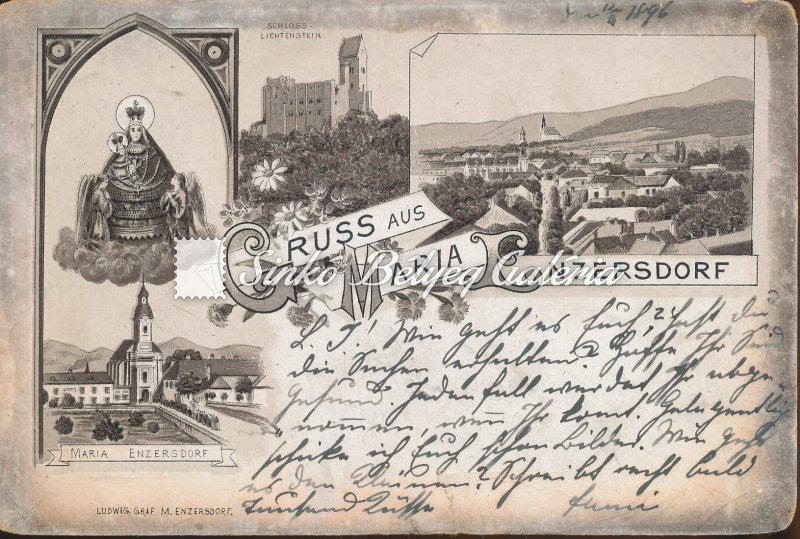 1896
SCHLOSS-
LICHTENSTEIN.
GRUSS AUS
MARIA
ENZERSDORF
Sinkó Bélyeg Galéria
L. J.! Wie geht es Euch, hast du
die Sachen erhalten? Hoffe Ihr seid
gesund. Jeden fall werdet Ihr abge-
nommen, wenn Ihr kommt. Gelegentlich
schicke ich Euch schon Bilder. Wie geht
es den Kleinen? Schreibt recht bald
Tausend Küsse
MARIA ENZERSDORF
LUDWIG GRAF M. ENZERSDORF.